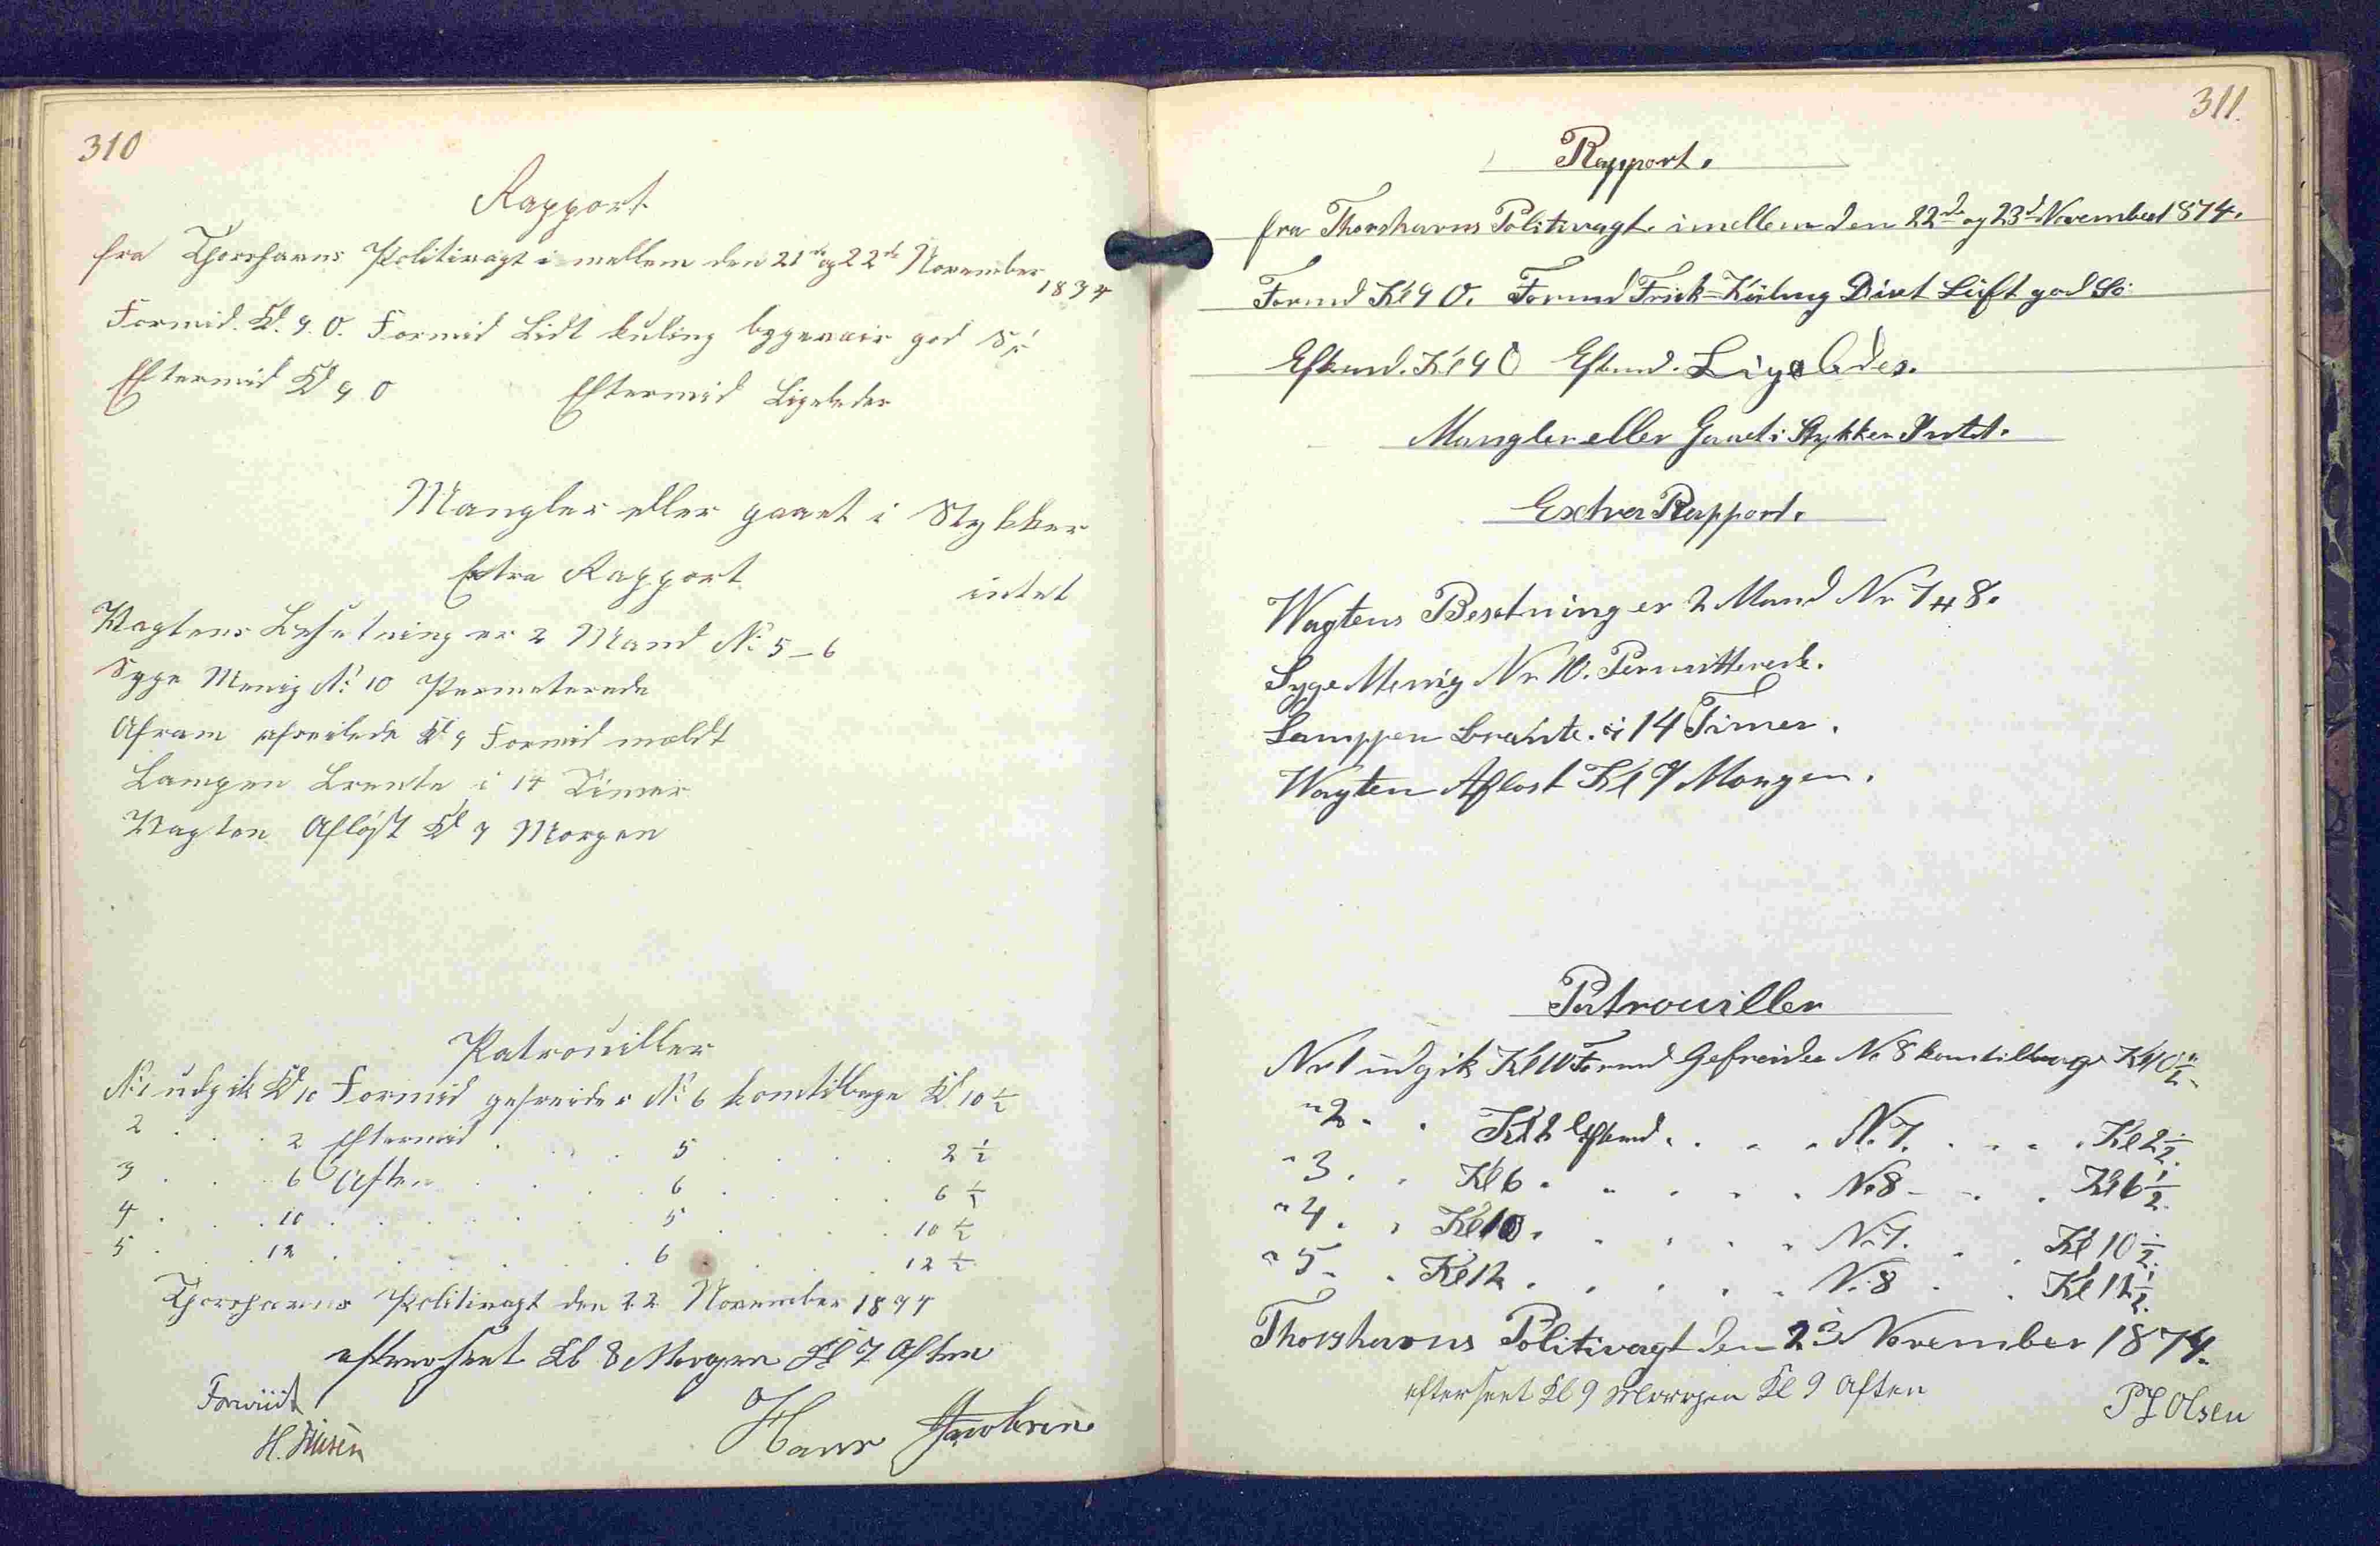 310
Rapport
fra Thorshavns Politivagt i mellem den 21de og 22de November
1874
Formid. Kl. 9. O. Formid Lidt kuling bygevair god Sø
Eftermid Kl 9 O Eftermid Ligeledes
Mangler eller gaaet i Stykker
intet
Extra Rapport
Vagtens Besetning er 2 Mand No 5-6
Syge Menig No 10 Permeterede
afreilede Kl 9 Formid meldt
Lampen Brente i 14 Timer
Vagten Afløst Kl 9 Morgen
Patrouiller
No 1 udgik Kl 10 Formid gefreider No 6 kom tilbage Kl 10 1/2
2 . . . 2 Eftermid . . . 5 . . . . 2 1/2
3 . . . 6 Aften . . . 6 . . . . 6 1/2
4 . . . 10 . . . . . 5 . . . . 10 1/2
5 . . . 12 . . . . . 6 . . . . 12 1/2
Thorshavns Politivagt den 22 November 1874
efterseet Kl 8 Morgen Kl 7 Aften
Hans Jacobsen
311.
Rapport.
fra Thorshavns Politivagt. imellem den 22de og 23d November 1874.
Formd Kl 9 O. Formd Frisk=Kuling Diset Luft god Sö
Eftmd. Kl 9 O Eftmd. Ligeledes.
Mangler eller Gaaet i Stykker Intet.
Extra Rapport.
Wagtens Besetning er 2 Mand Nr 7 & 8.
Syge Menig Nr 10. Permitterede.
Lamppen brante. i 14 Timer.
Wagten Aflost Kl 9 Morgen.
Patrouiller
Nr 1 udgik Kl 10 Formd Gefreider Nr 8 kom tilbage Kl 10 1/2.
" 2 . . Kl 2 Eftmd . . . . Nr 7. . . . Kl 2 1/2.
" 3 . . Kl 6 . . . . . Nr 8 . . . Kl 6 1/2.
" 4 . . Kl 10 . . . . . Nr 7. . . Kl 10 1/2.
" 5 . . Kl 12 . . . . . Nr 8 . . Kl 12 1/2.
Thorshavns Politivagt den 23 November 1874.
efterseet Kl 9 Morgen Kl 9 Aften
P J Olsen